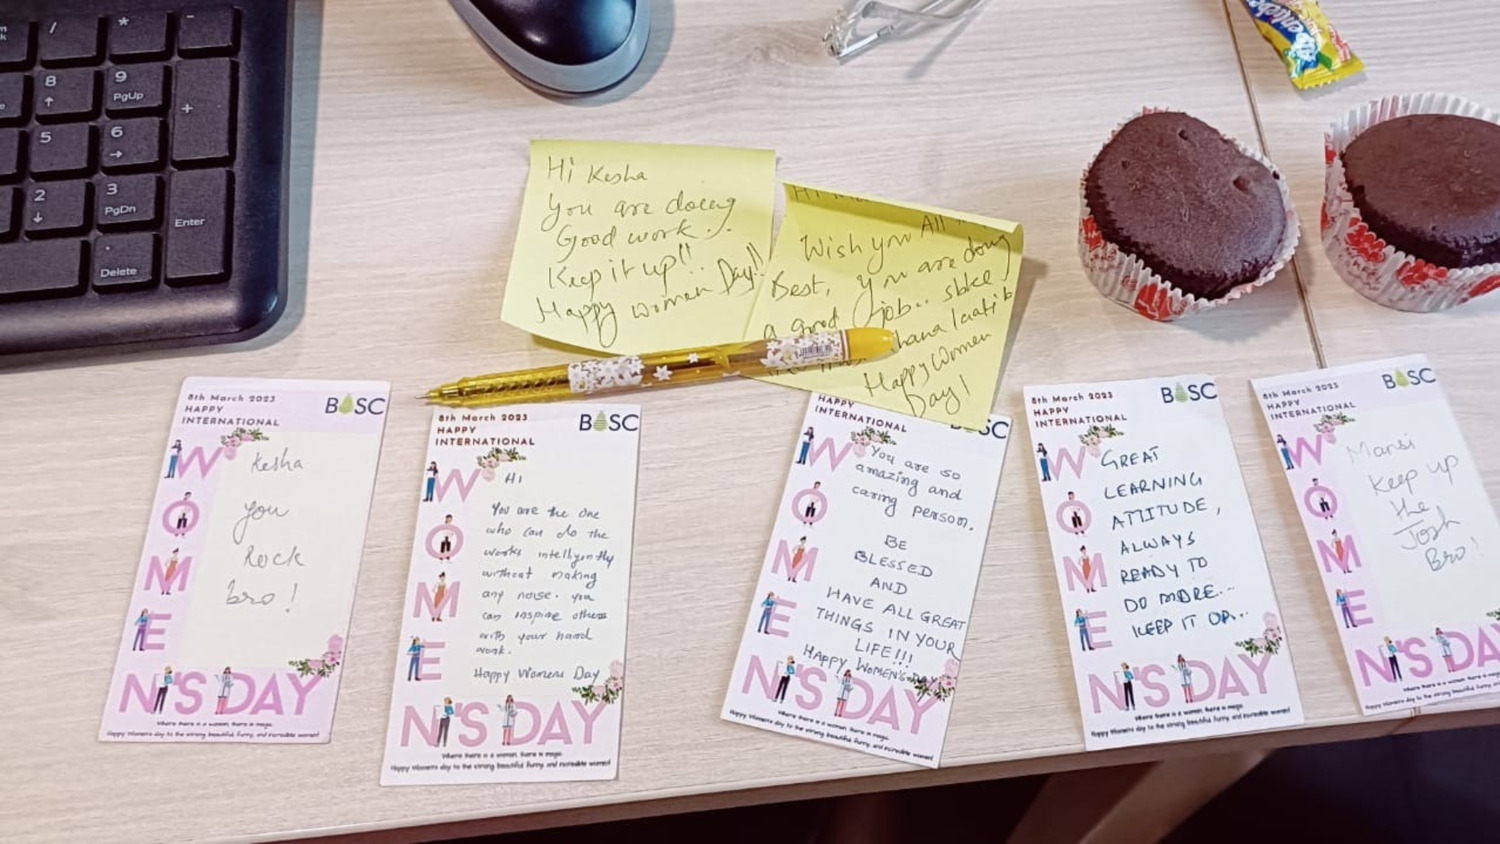 /
*
-
8
9
PgUp
+
5
6
2
3
PgDn
Enter
.
Delete
Hi Kesha
You are doing
Good work..
Keep it up!!
Happy women Day!!
Wish you All
Best, you are doing
a good job..
Happy Women
Day!
8th March 2023
HAPPY
INTERNATIONAL
BOSC
WOMEN'S DAY
Kesha
you
Rock
bro!
Where there is a woman, there is magic.
Happy Women's day to the strong, beautiful, funny, and incredible women!
8th March 2023
HAPPY
INTERNATIONAL
BOSC
WOMEN'S DAY
Hi
You are the one
who can do the
works intelligently
without making
any noise. you
can inspire others
with your hard
work.
Happy Womens Day
Where there is a woman, there is magic.
Happy Women's day to the strong, beautiful, funny, and incredible women!
HAPPY
INTERNATIONAL
WOMEN'S DAY
You are so
amazing and
caring person.
BE
BLESSED
AND
HAVE ALL GREAT
THINGS IN YOUR
LIFE!!!
HAPPY WOMEN'S DAY
Where there is a woman, there is magic.
Happy Women's day to the strong, beautiful, funny, and incredible women!
8th March 2023
HAPPY
INTERNATIONAL
BOSC
WOMEN'S DAY
GREAT
LEARNING
ATTITUDE,
ALWAYS
READY TO
DO MORE...
KEEP IT UP...
Where there is a woman, there is magic.
Happy Women's day to the strong, beautiful, funny, and incredible women!
8th March 2023
HAPPY
INTERNATIONAL
BOSC
WOMEN'S DA
Mansi
Keep up
the
Josh
Bro!
Where there is a woman, there is magic.
Happy Women's day to the strong, beautiful, funny, and incredible